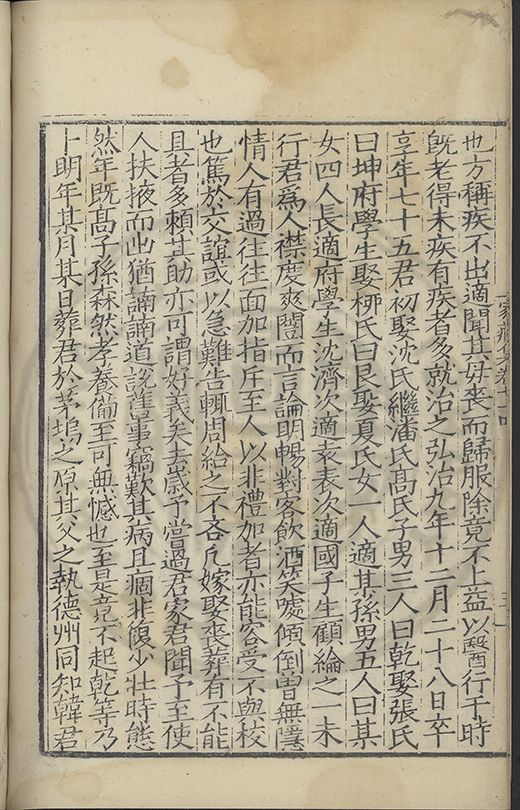 也方稱疾不出適聞其母喪而歸服除竟不上益以醫行于時
既老得末疾有疾者多就治之弘治九年十二月二十八日卒
享年七十五君初娶沈氏繼潘氏髙氏子男三人曰乾娶張氏
曰坤府學生娶栁氏曰艮娶夏氏女一人適某孫男五人曰某
女四人長適府學生沈濟次適袁表次適國子生顧綸之一未
行君爲人襟度爽闓而言論明暢對客飲酒笑噱傾倒曽無
情人有過往往面加指斥至人以非禮加者亦能容受不與校
也篤於交誼或以急難告輒周給之不吝凡嫁娶喪葬有不能
具者多頼其助亦可謂好義矣去歳予嘗過君家君聞予至使
人扶掖而出猶諵諵道說舊事竊歎其病且痼非復少壯時態
然年既髙子孫森然孝養備至可無憾也至是竟不起乾等乃
卜明年某月某日葬君於茅塢之原其父之執德州同知韓君